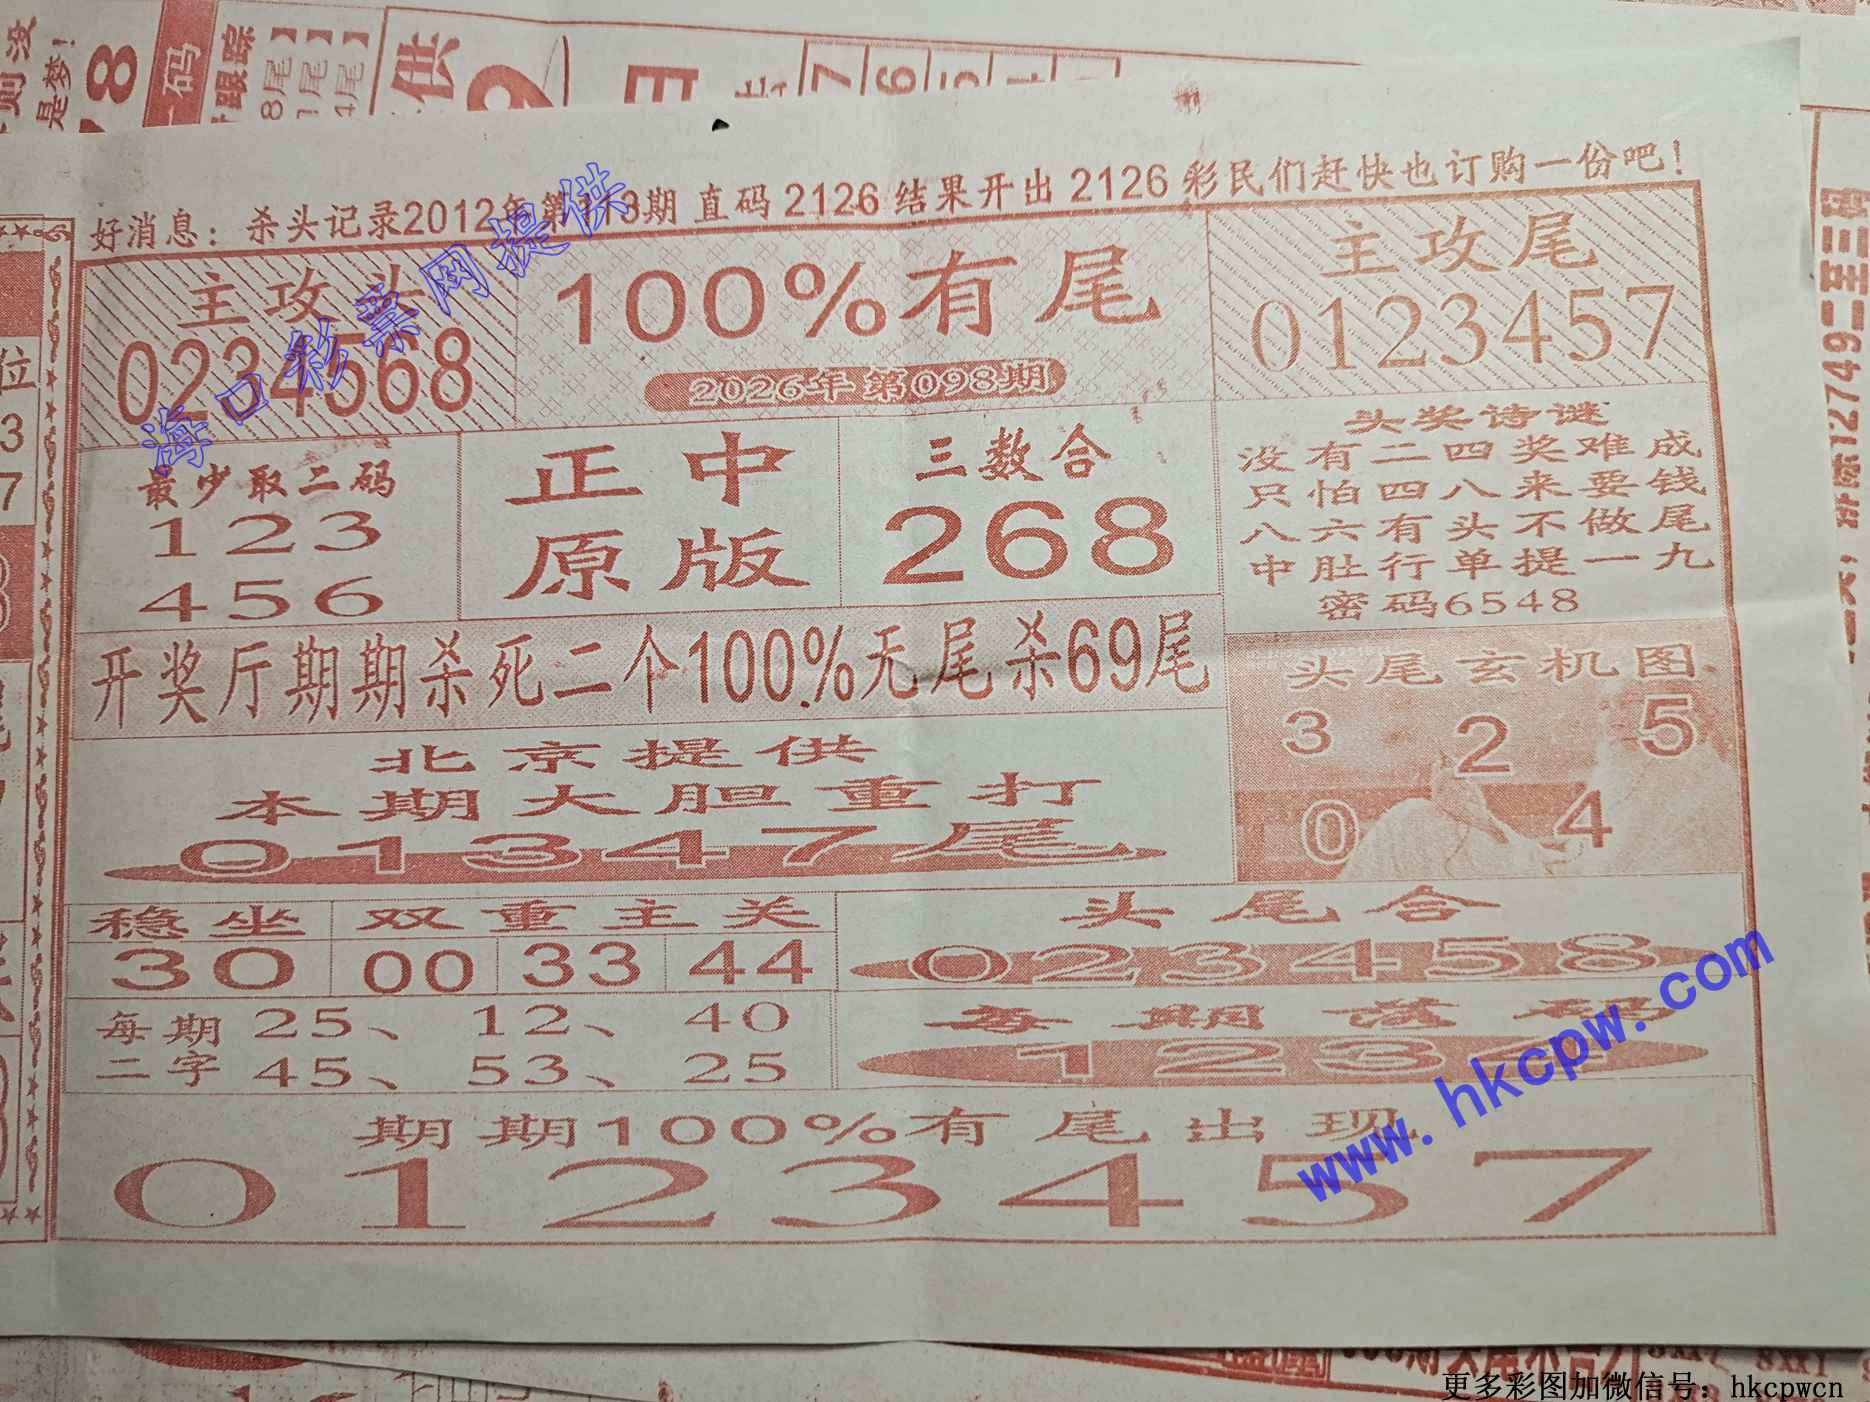 好消息：杀头记录2012年第113期 直码 2126 结果开出 2126 彩民们赶快也订购一份吧！
主攻头
0234568
100%有尾
2026年第098期
主攻尾
0123457
最少取二码
123
456
正中
原版
三数合
268
头奖诗谜
没有二四奖难成
只怕四八来要钱
八六有头不做尾
中肚行单提一九
密码6548
开奖厅期期杀死二个100%无尾杀69尾
头尾玄机图
3 2 5
0 4
北京提供
本期大胆重打
01347尾
稳坐
30
双重主关
00 33 44
头尾合
023458
每期
二字
25、 12、 40
45、 53、 25
每期 码
123
期期100%有尾出现
0123457
海口彩票网提供
www.hkcpw.com
更多彩图加微信号：hkcpwcn